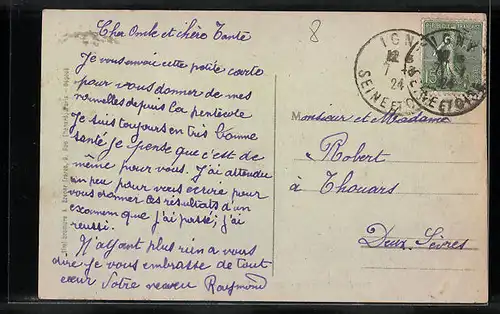 Cher Oncle et chère Tante
Je vous envoie cette petite carte
pour vous donner de mes
nouvelles depuis la pentecôte
Je suis toujours en très bonne
santé je pense que c'est de
même pour vous. J'ai attendu
un peu pour vous écrire pour
vous donner les résultats d'un
examen que j'ai passé, j'ai
réussi.
N'ayant plus rien a vous
dire je vous embrasse de tout
cœur Votre neveu Raymond
8
IGNY
SEINE ET OISE
24
15
Monsieur et Madame
Robert
à Thouars
Deux-Sèvres